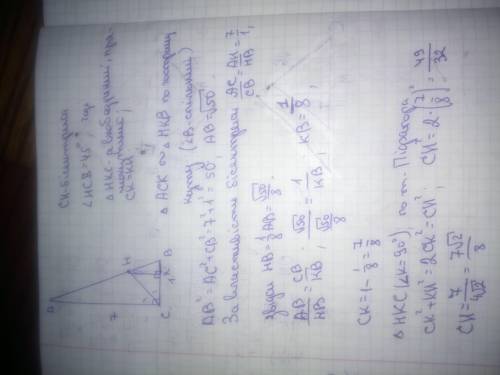 CH-бісектриса
∠HCB=45°, тоді
△HKC-рівнобедрений, пря-
мокутний,
CK=KH
△ACK ∾ △HKB по гострому
куту (∠B-спільний)
AB²=AC²+CB²=7²+1²=50; AB=√50.
За властивістю бісектриси AC/CB=AH/HB=7/1,
звідси HB=1/8AB=√50/8.
AB/HB=CB/KB; √50/(√50/8)=1/KB; KB=1/8;
CK=1-1/8=7/8
△HKC(∠K=90°) по т. Піфагора
CK²+KH²=2CK²=CH²; CH²=2·(7/8)²=49/32
CH=7/4√2=7√2/8
A
H
7
C
1
K
B